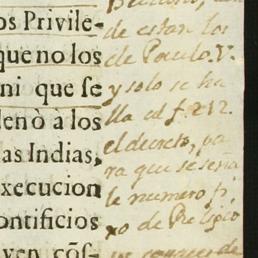 os Privile-
que no los
ni que se
denò a los
as Indias,
execucion
ontificios
uen, cõs-
de estan los
de Paulo. V.
y solo se ha
lla al f. 212.
el decreto, pa
ra que se seña
le numero fi
xo de Religio